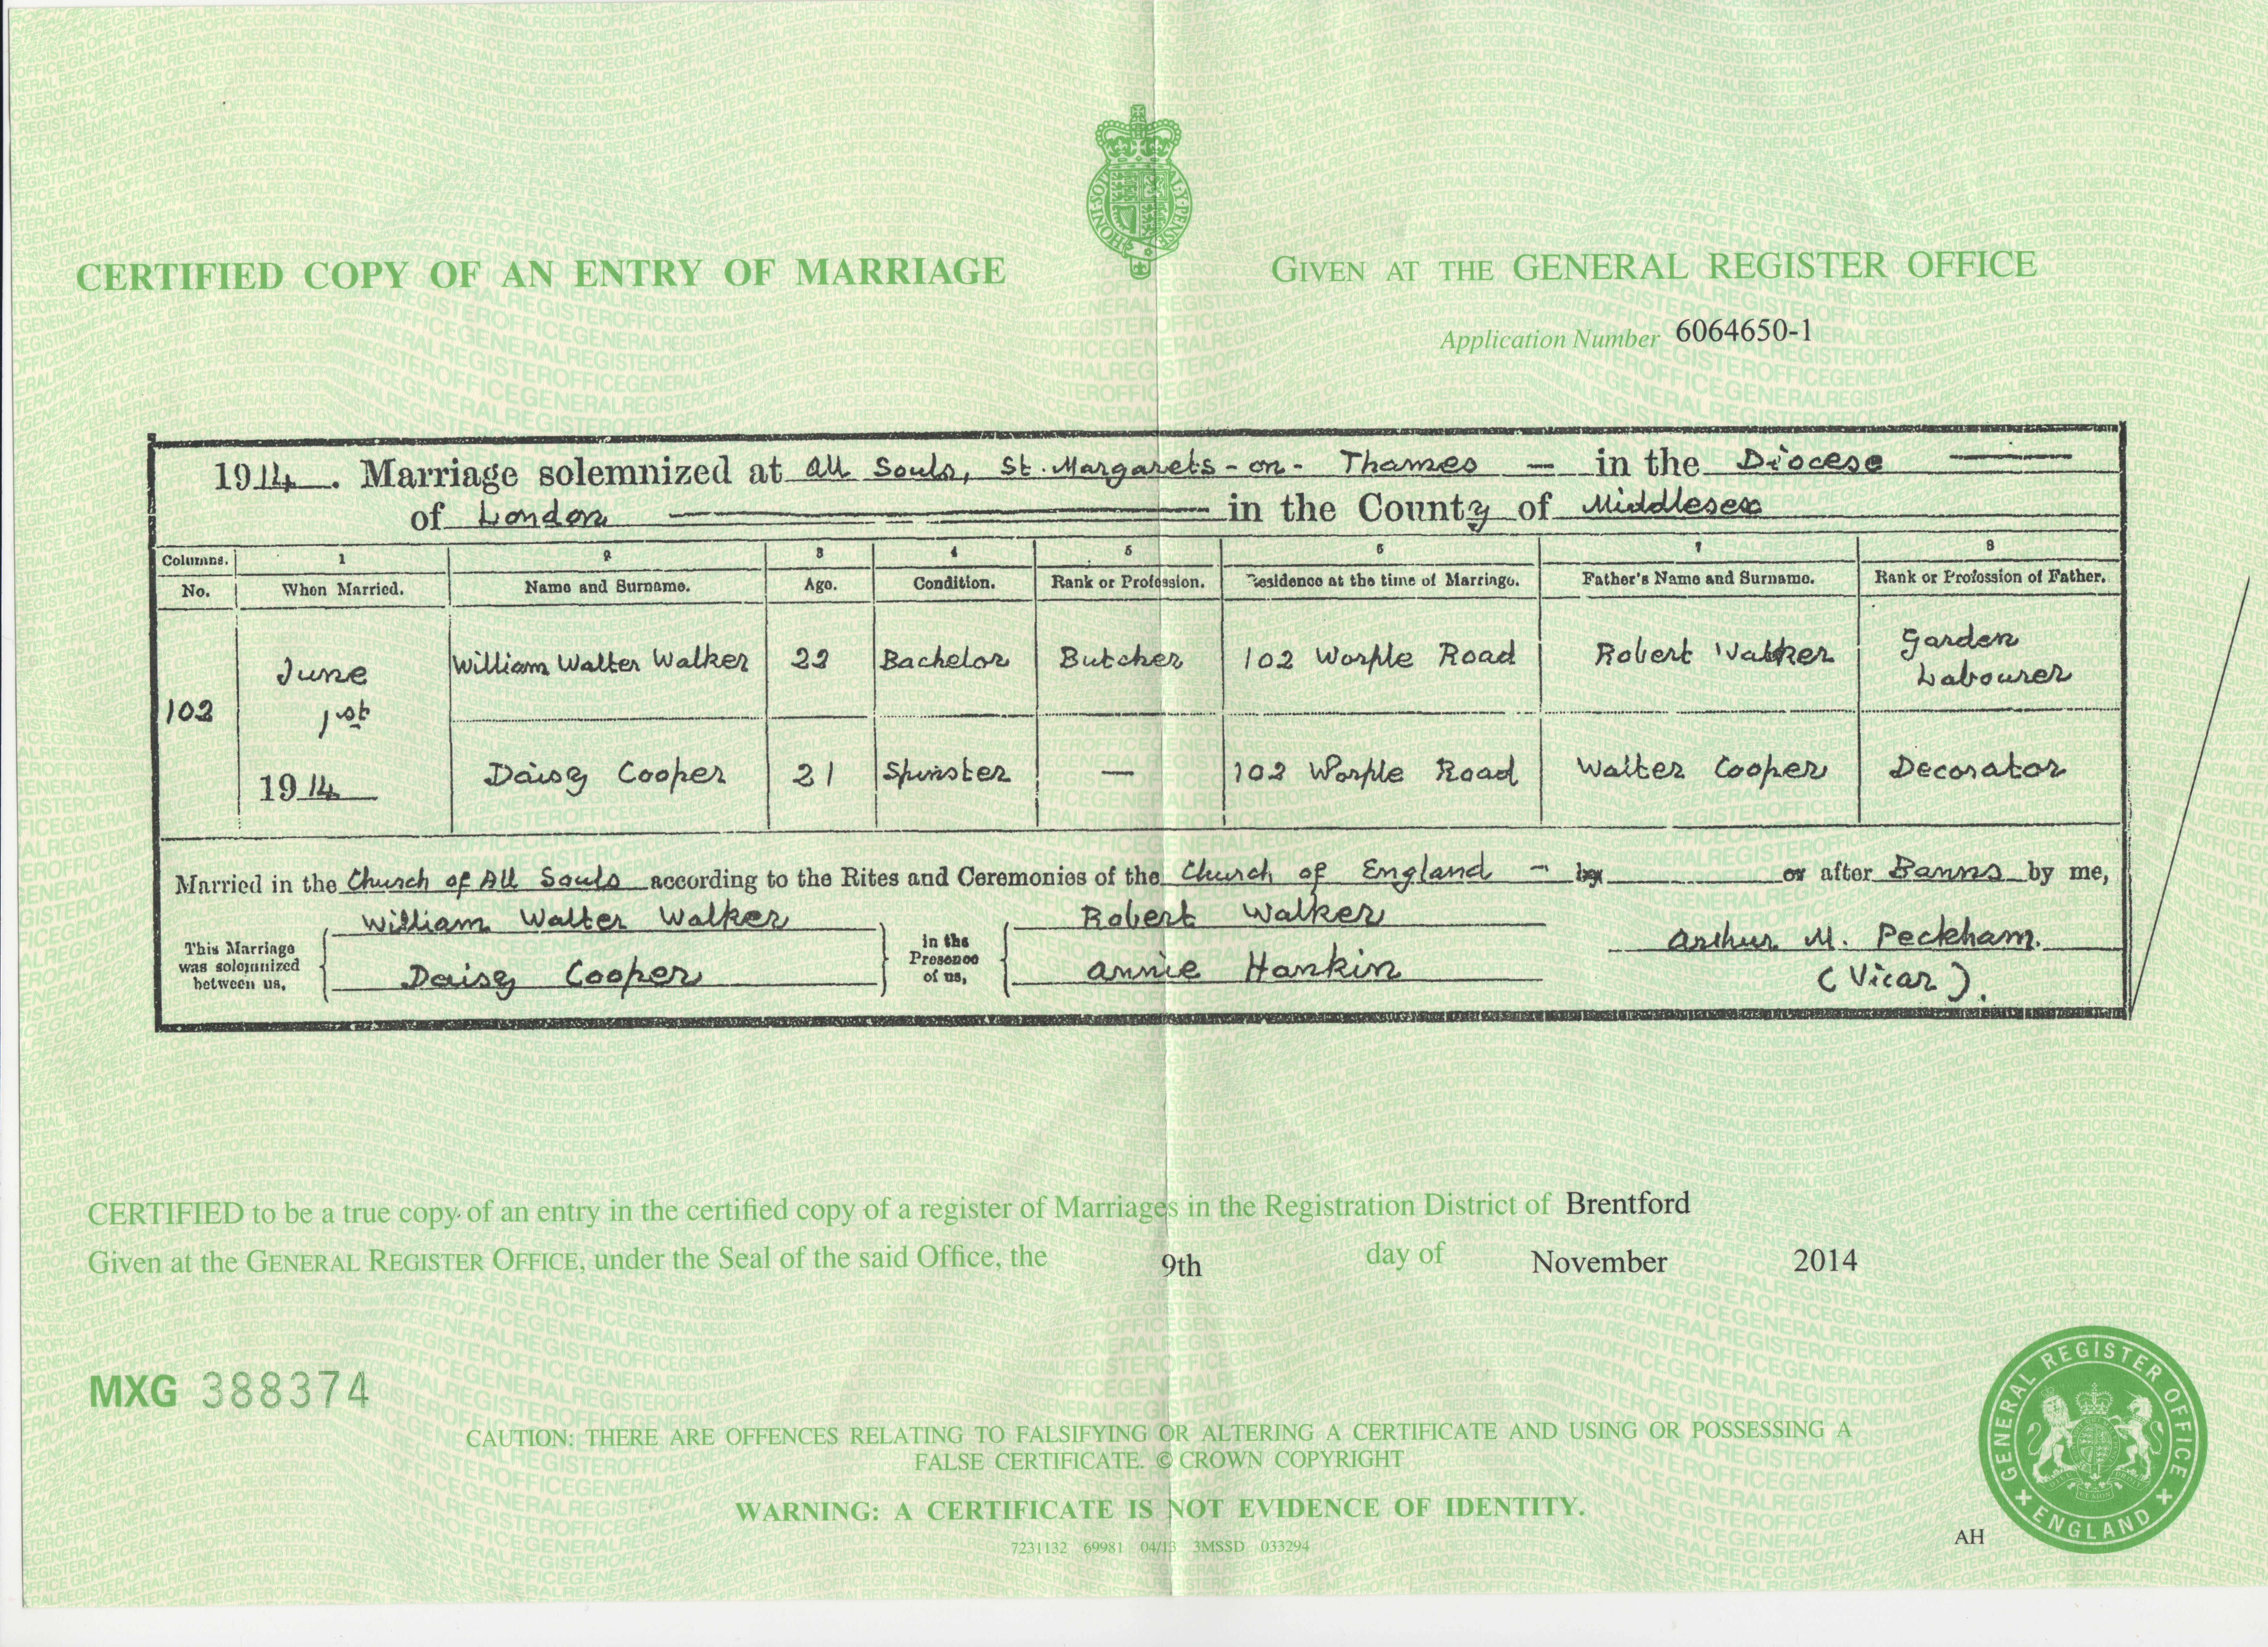 CERTIFIED COPY OF AN ENTRY OF MARRIAGE
GIVEN AT THE GENERAL REGISTER OFFICE
Application Number 6064650-1
1914. Marriage solemnized at All Souls, St. Margarets-on-Thames — in the Diocese
of London in the County of Middlesex
Columns. 1 2 3 4 5 6 7 8
No. When Married. Name and Surname. Age. Condition. Rank or Profession. Residence at the time of Marriage. Father's Name and Surname. Rank or Profession of Father.
102 June 1st 1914 William Walter Walker 22 Bachelor Butcher 102 Worple Road Robert Walker Garden Labourer
Daisy Cooper 21 Spinster — 102 Worple Road Walter Cooper Decorator
Married in the Church of All Souls according to the Rites and Ceremonies of the Church of England — by or after Banns by me,
This Marriage was solemnized between us, William Walter Walker in the Presence of us, Robert Walker Arthur M. Peckham.
Daisy Cooper Annie Hankin (Vicar).
CERTIFIED to be a true copy of an entry in the certified copy of a register of Marriages in the Registration District of Brentford
Given at the GENERAL REGISTER OFFICE, under the Seal of the said Office, the 9th day of November 2014
MXG 388374
CAUTION: THERE ARE OFFENCES RELATING TO FALSIFYING OR ALTERING A CERTIFICATE AND USING OR POSSESSING A
FALSE CERTIFICATE. © CROWN COPYRIGHT
WARNING: A CERTIFICATE IS NOT EVIDENCE OF IDENTITY.
7231132 69981 04/13 3MSSD 033294
AH
GENERAL REGISTER OFFICE
ENGLAND